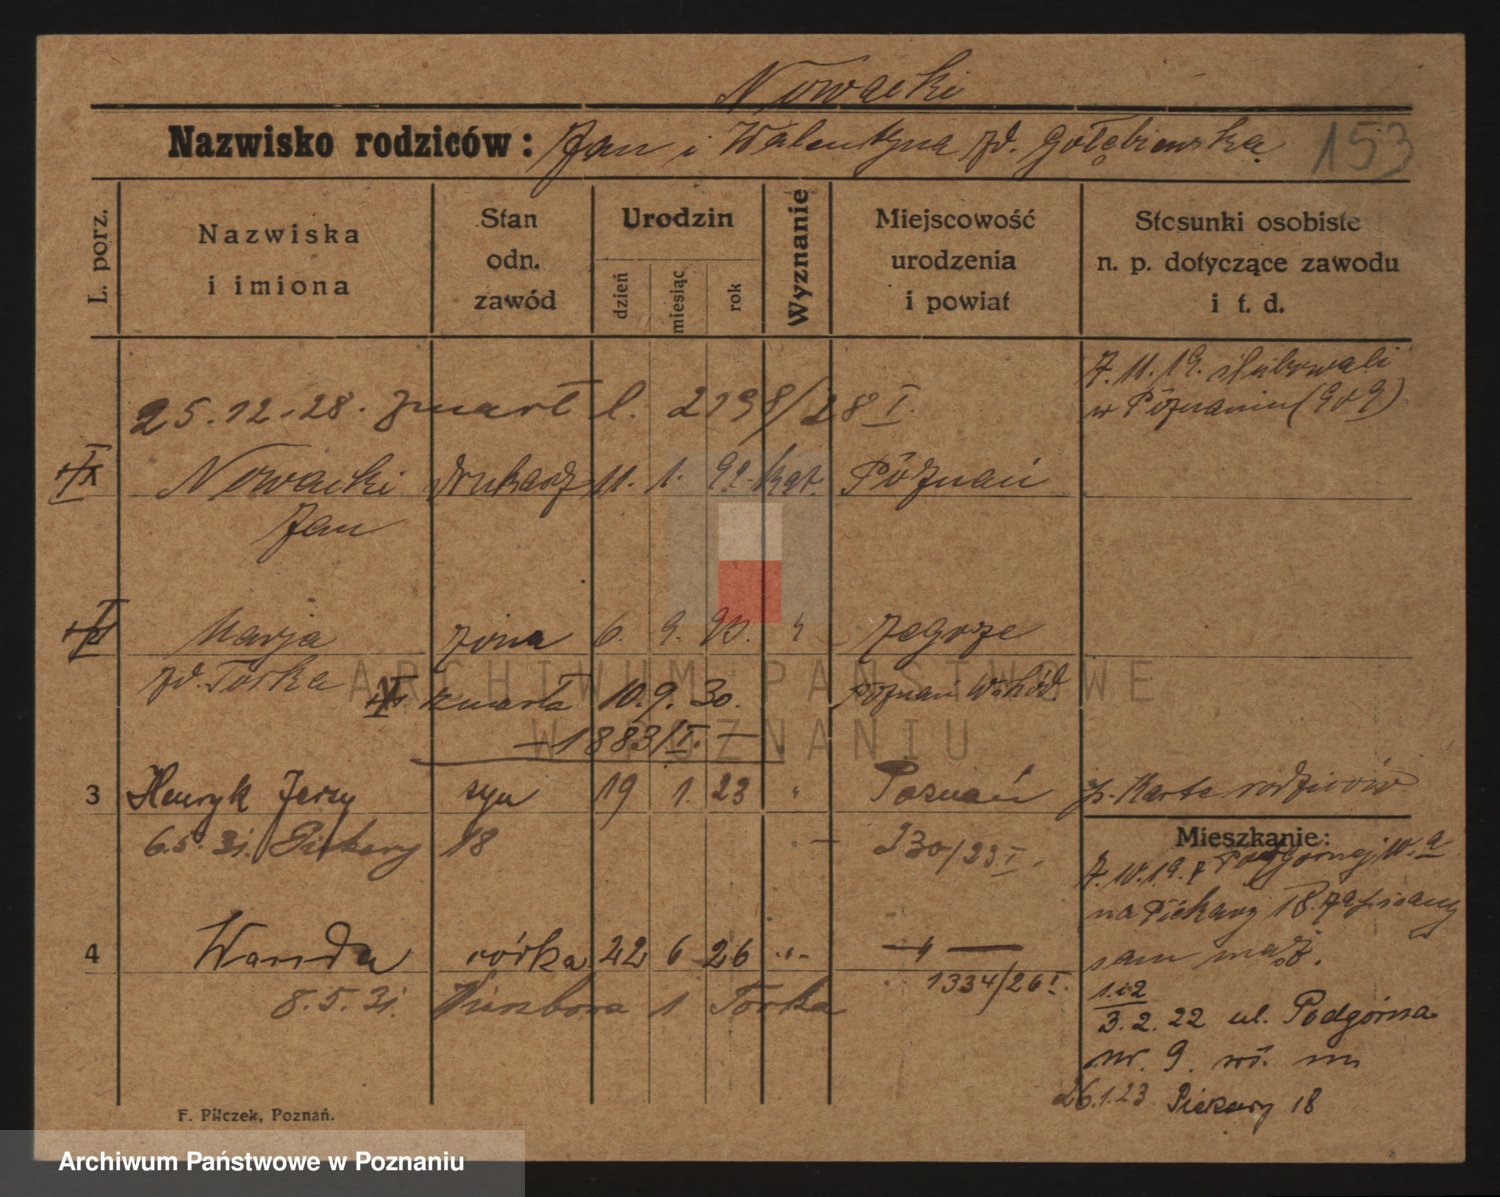 Nowacki
Nazwisko rodziców: Jan i Walentyna zd. Gołębiewska 153
L. porz.
Nazwiska
i imiona
Stan
odn.
zawód
Urodzin
dzień
miesiąc
rok
Wyznanie
Miejscowość
urodzenia
i powiat
Stosunki osobiste
n. p. dotyczące zawodu
i t. d.
7. 11. 19. ślubowali
w Poznaniu
25.12.28. zmarł l. 2198/28 I.
Nowacki drukarz 11. 1. 92. kat. Poznań
Jan
Marja żona 6. 9. 93. " Zegrze
zd. Torka Poznań Wschód
zmarła 10.9.30.
—1883/II.—
3 Henryk Jerzy syn 19 1. 23 " Poznań p. Karta rodziców
6.5.31. Piekary 18 — 230/23 I.
Mieszkanie:
7. 10. 19. z Podgórnej 10.a
na Piekary 18 zapisany
sam mąż.
4 Wanda córka 22 6 26 " — " —
1334/26 I.
8.5.31. 1 Torka
1.i 2
3. 2. 22 ul. Podgórna
nr. 9.
26.1.23 Piekary 18
F. Pilczek, Poznań.
ARCHIWUM PAŃSTWOWE
W POZNANIU
Archiwum Państwowe w Poznaniu